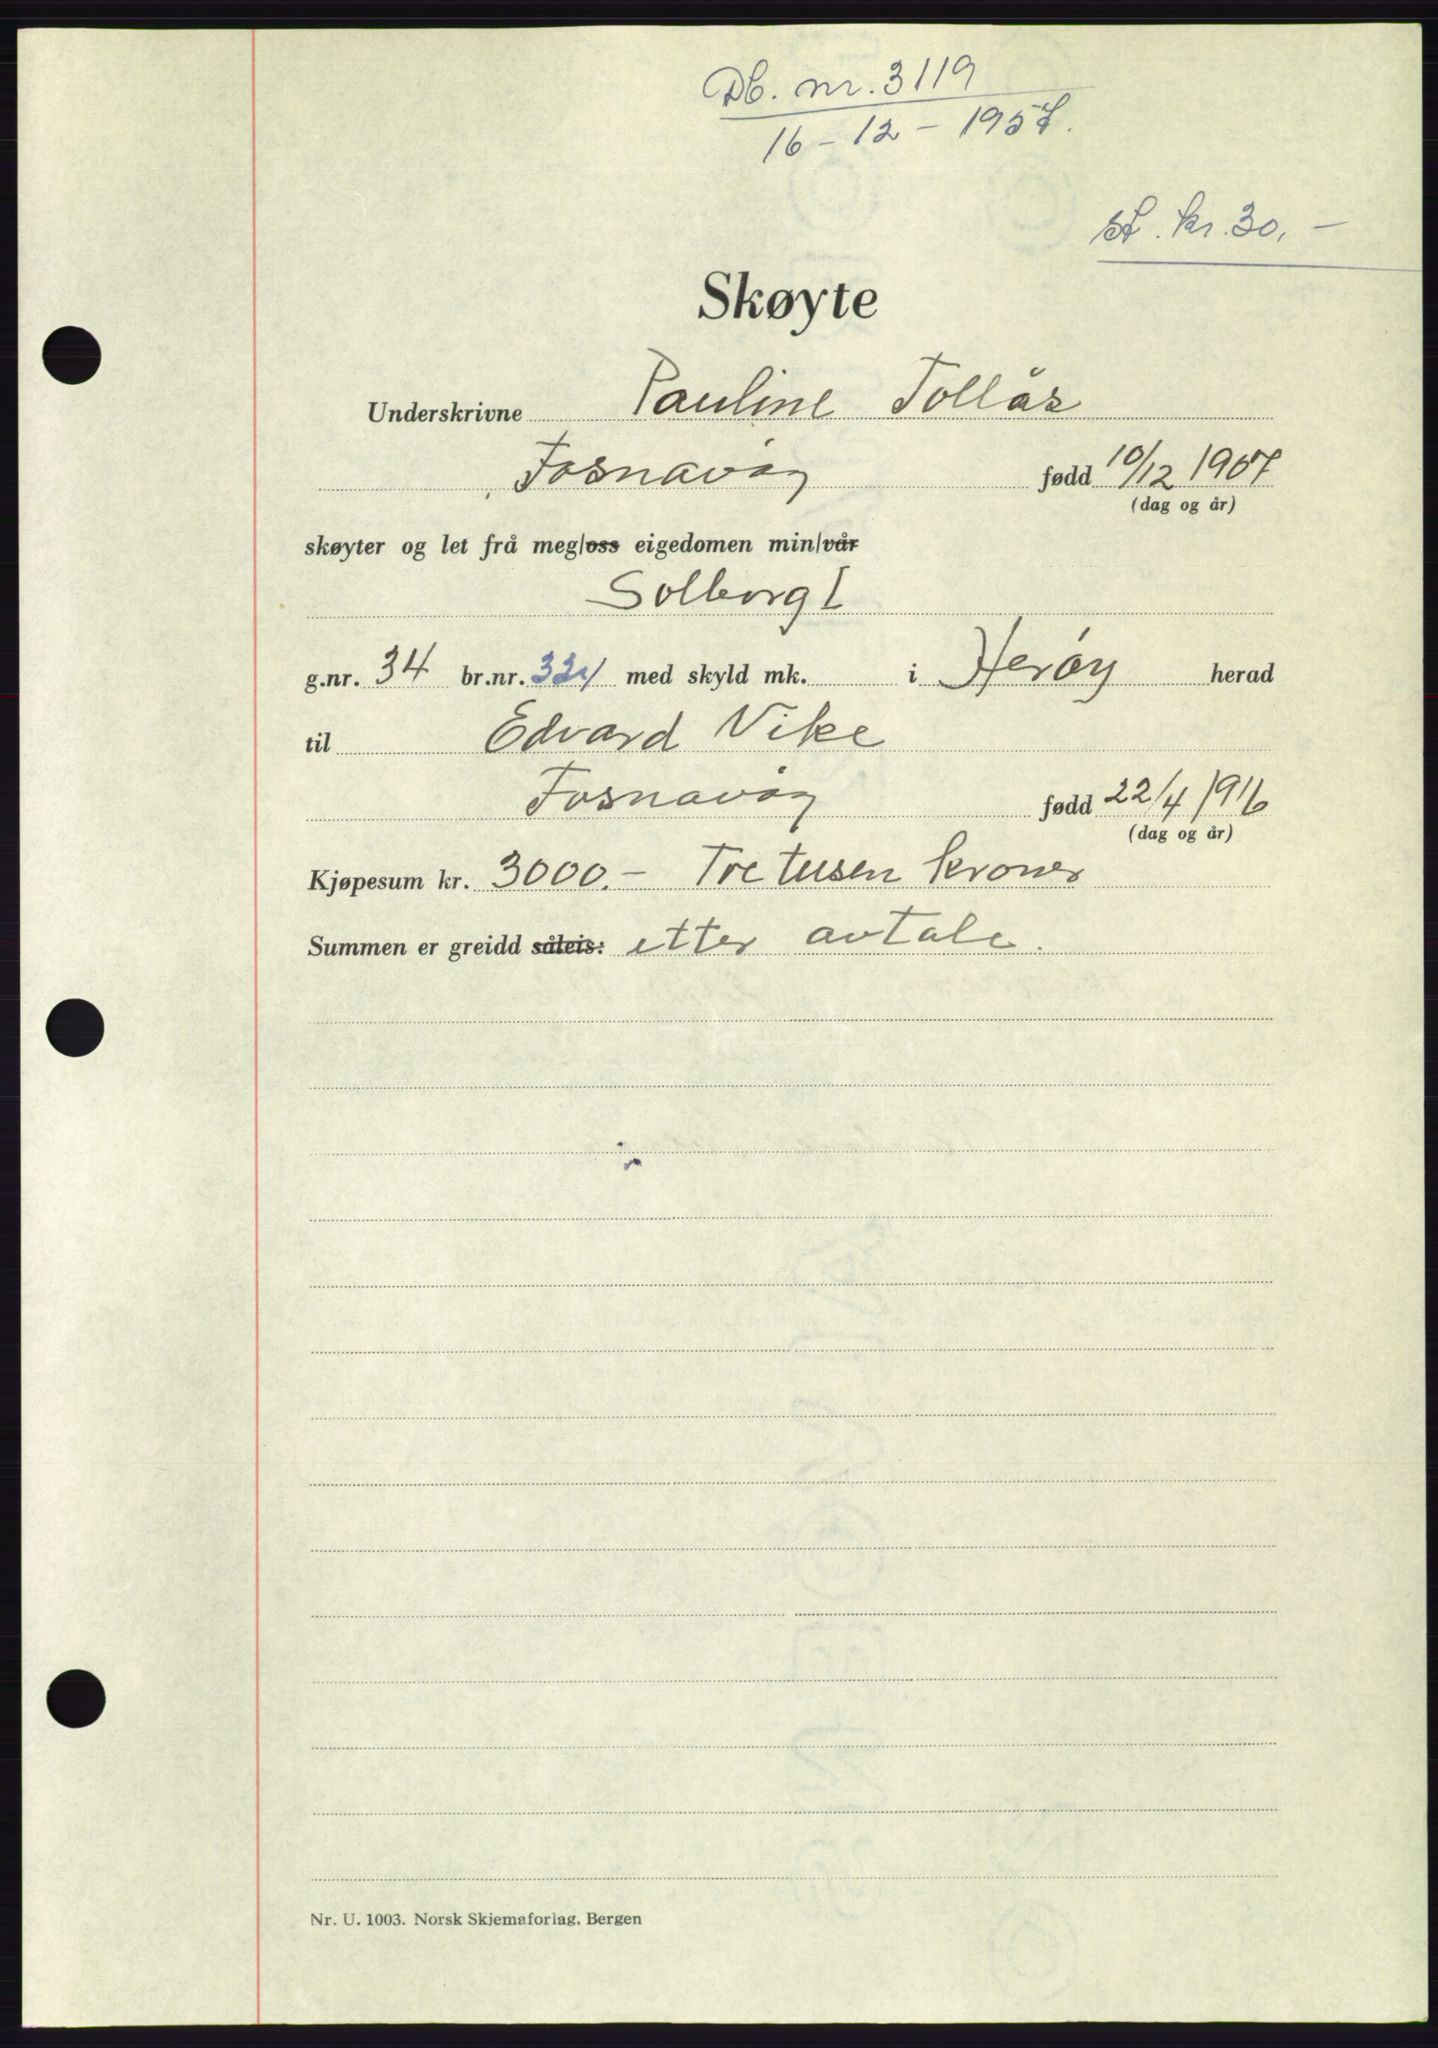 Db. nr. 3119
16 - 12 - 1957.
St. kr. 30.-
Skøyte
Underskrivne Pauline Tollås
Fosnavåg fødd 10/12 1907
(dag og år)
skøyter og let frå meg/oss eigedomen min/vår
Solborg I
g.nr. 34 br.nr. 331 med skyld mk. i Herøy herad
til Edvard Vike
Fosnavåg fødd 22/4 1916
(dag og år)
Kjøpesum kr. 3000.- Tre tusen kroner
Summen er greidd såleis: etter avtale.
Nr. U. 1003. Norsk Skjemaforlag, Bergen